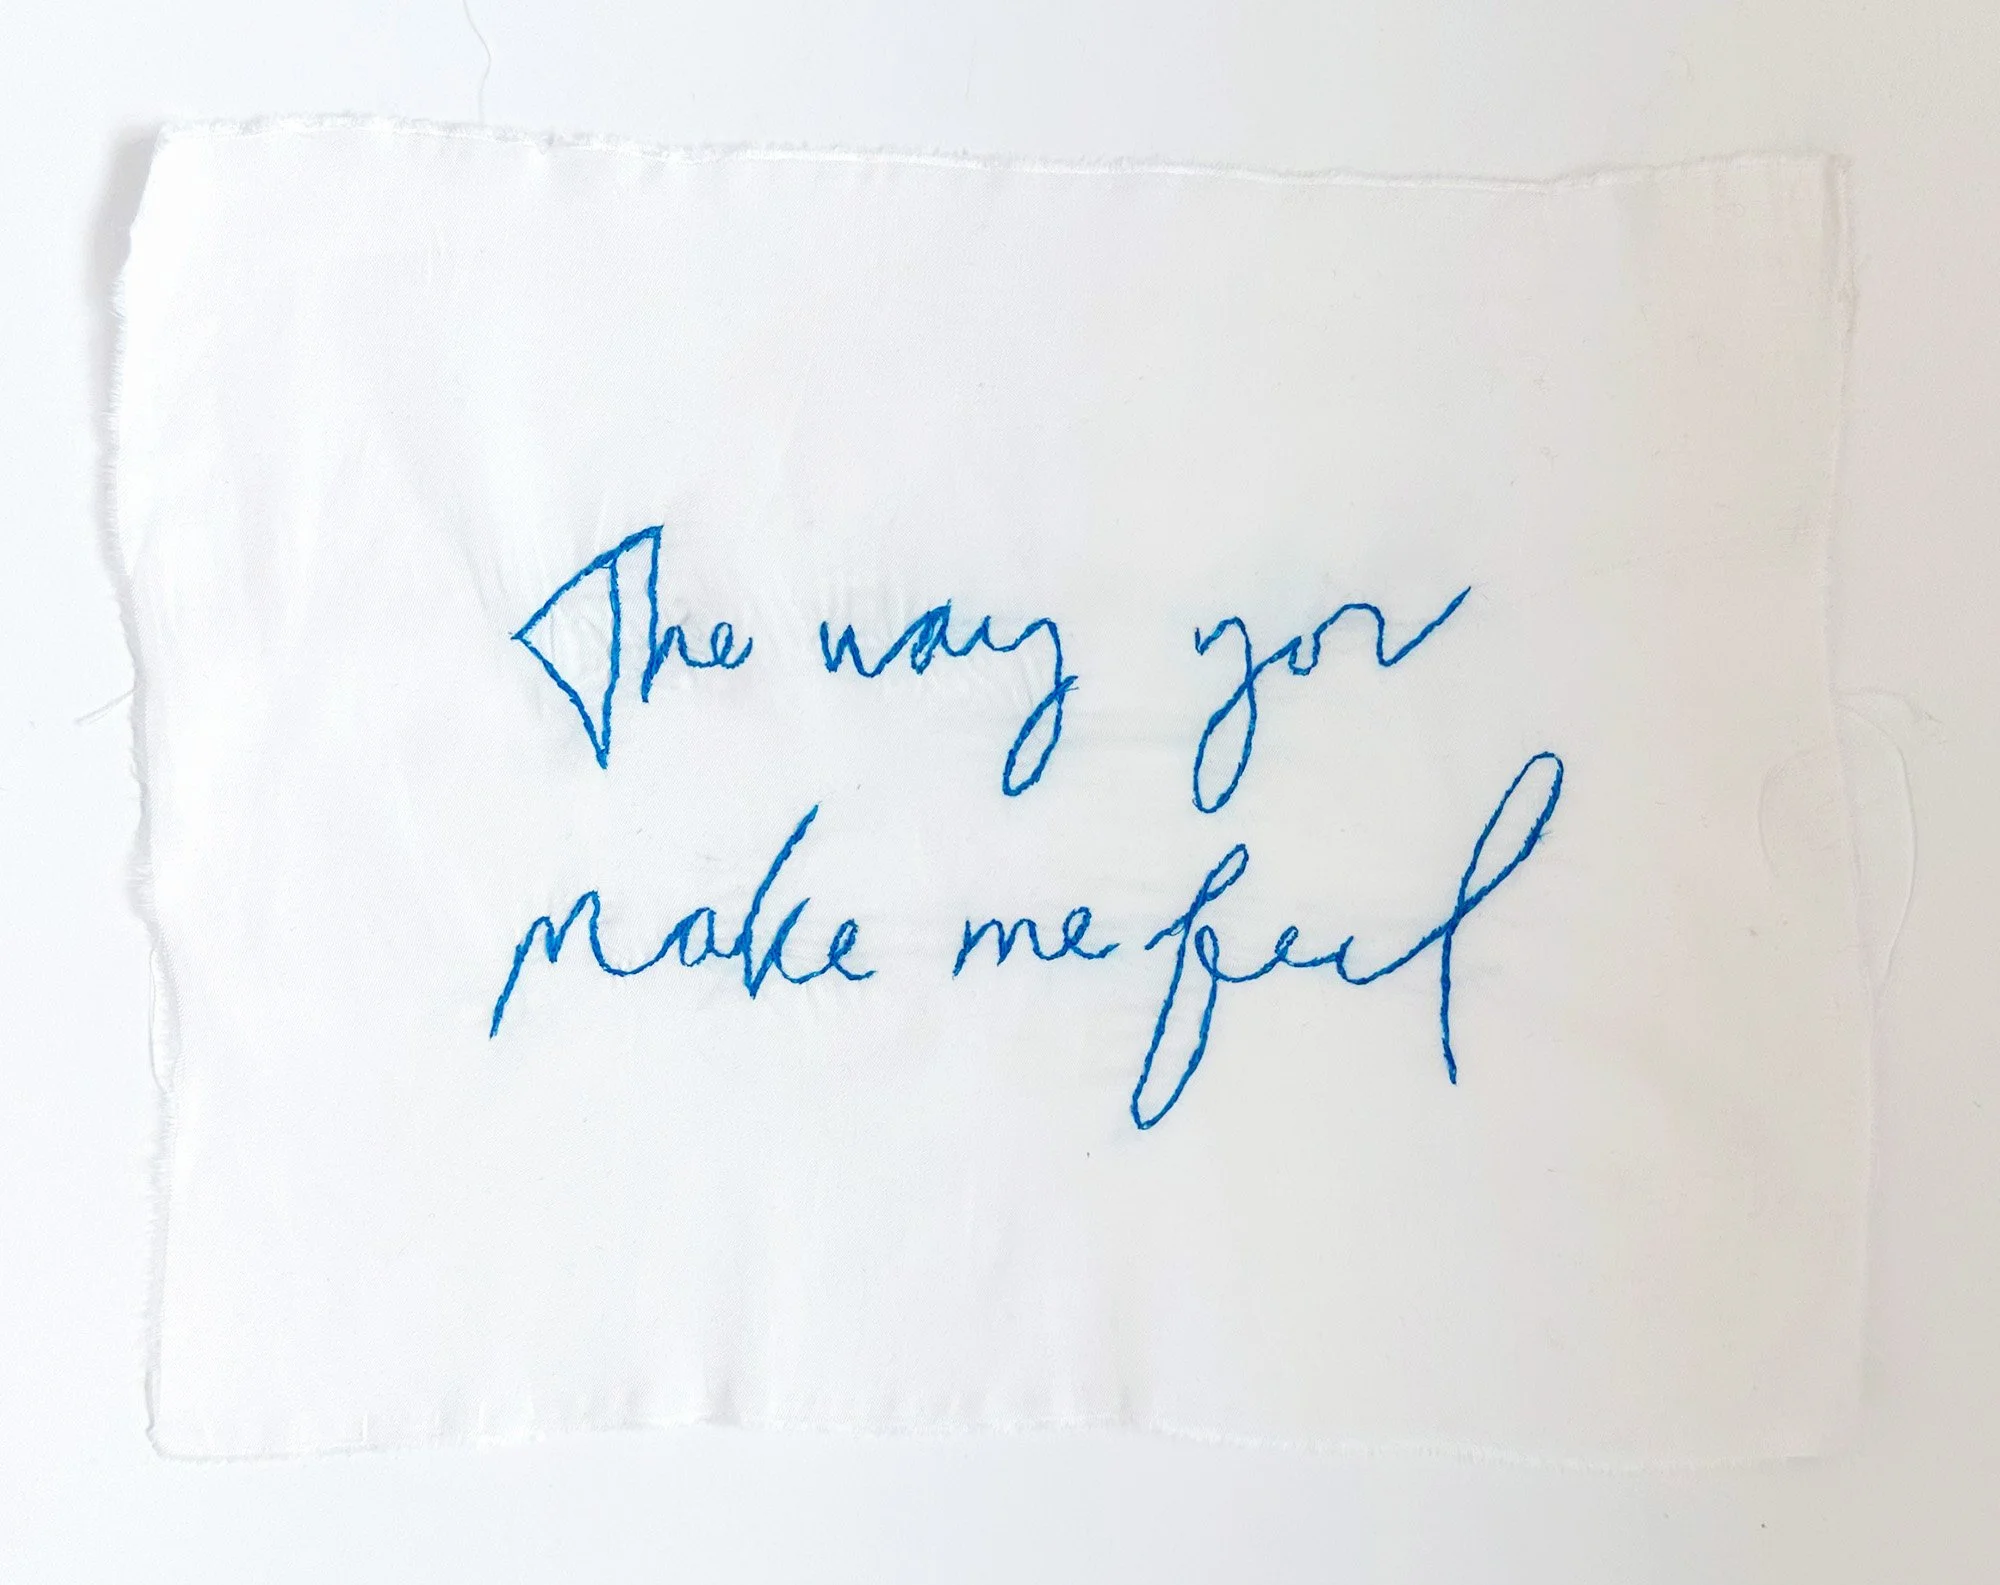 The way you
make me feel